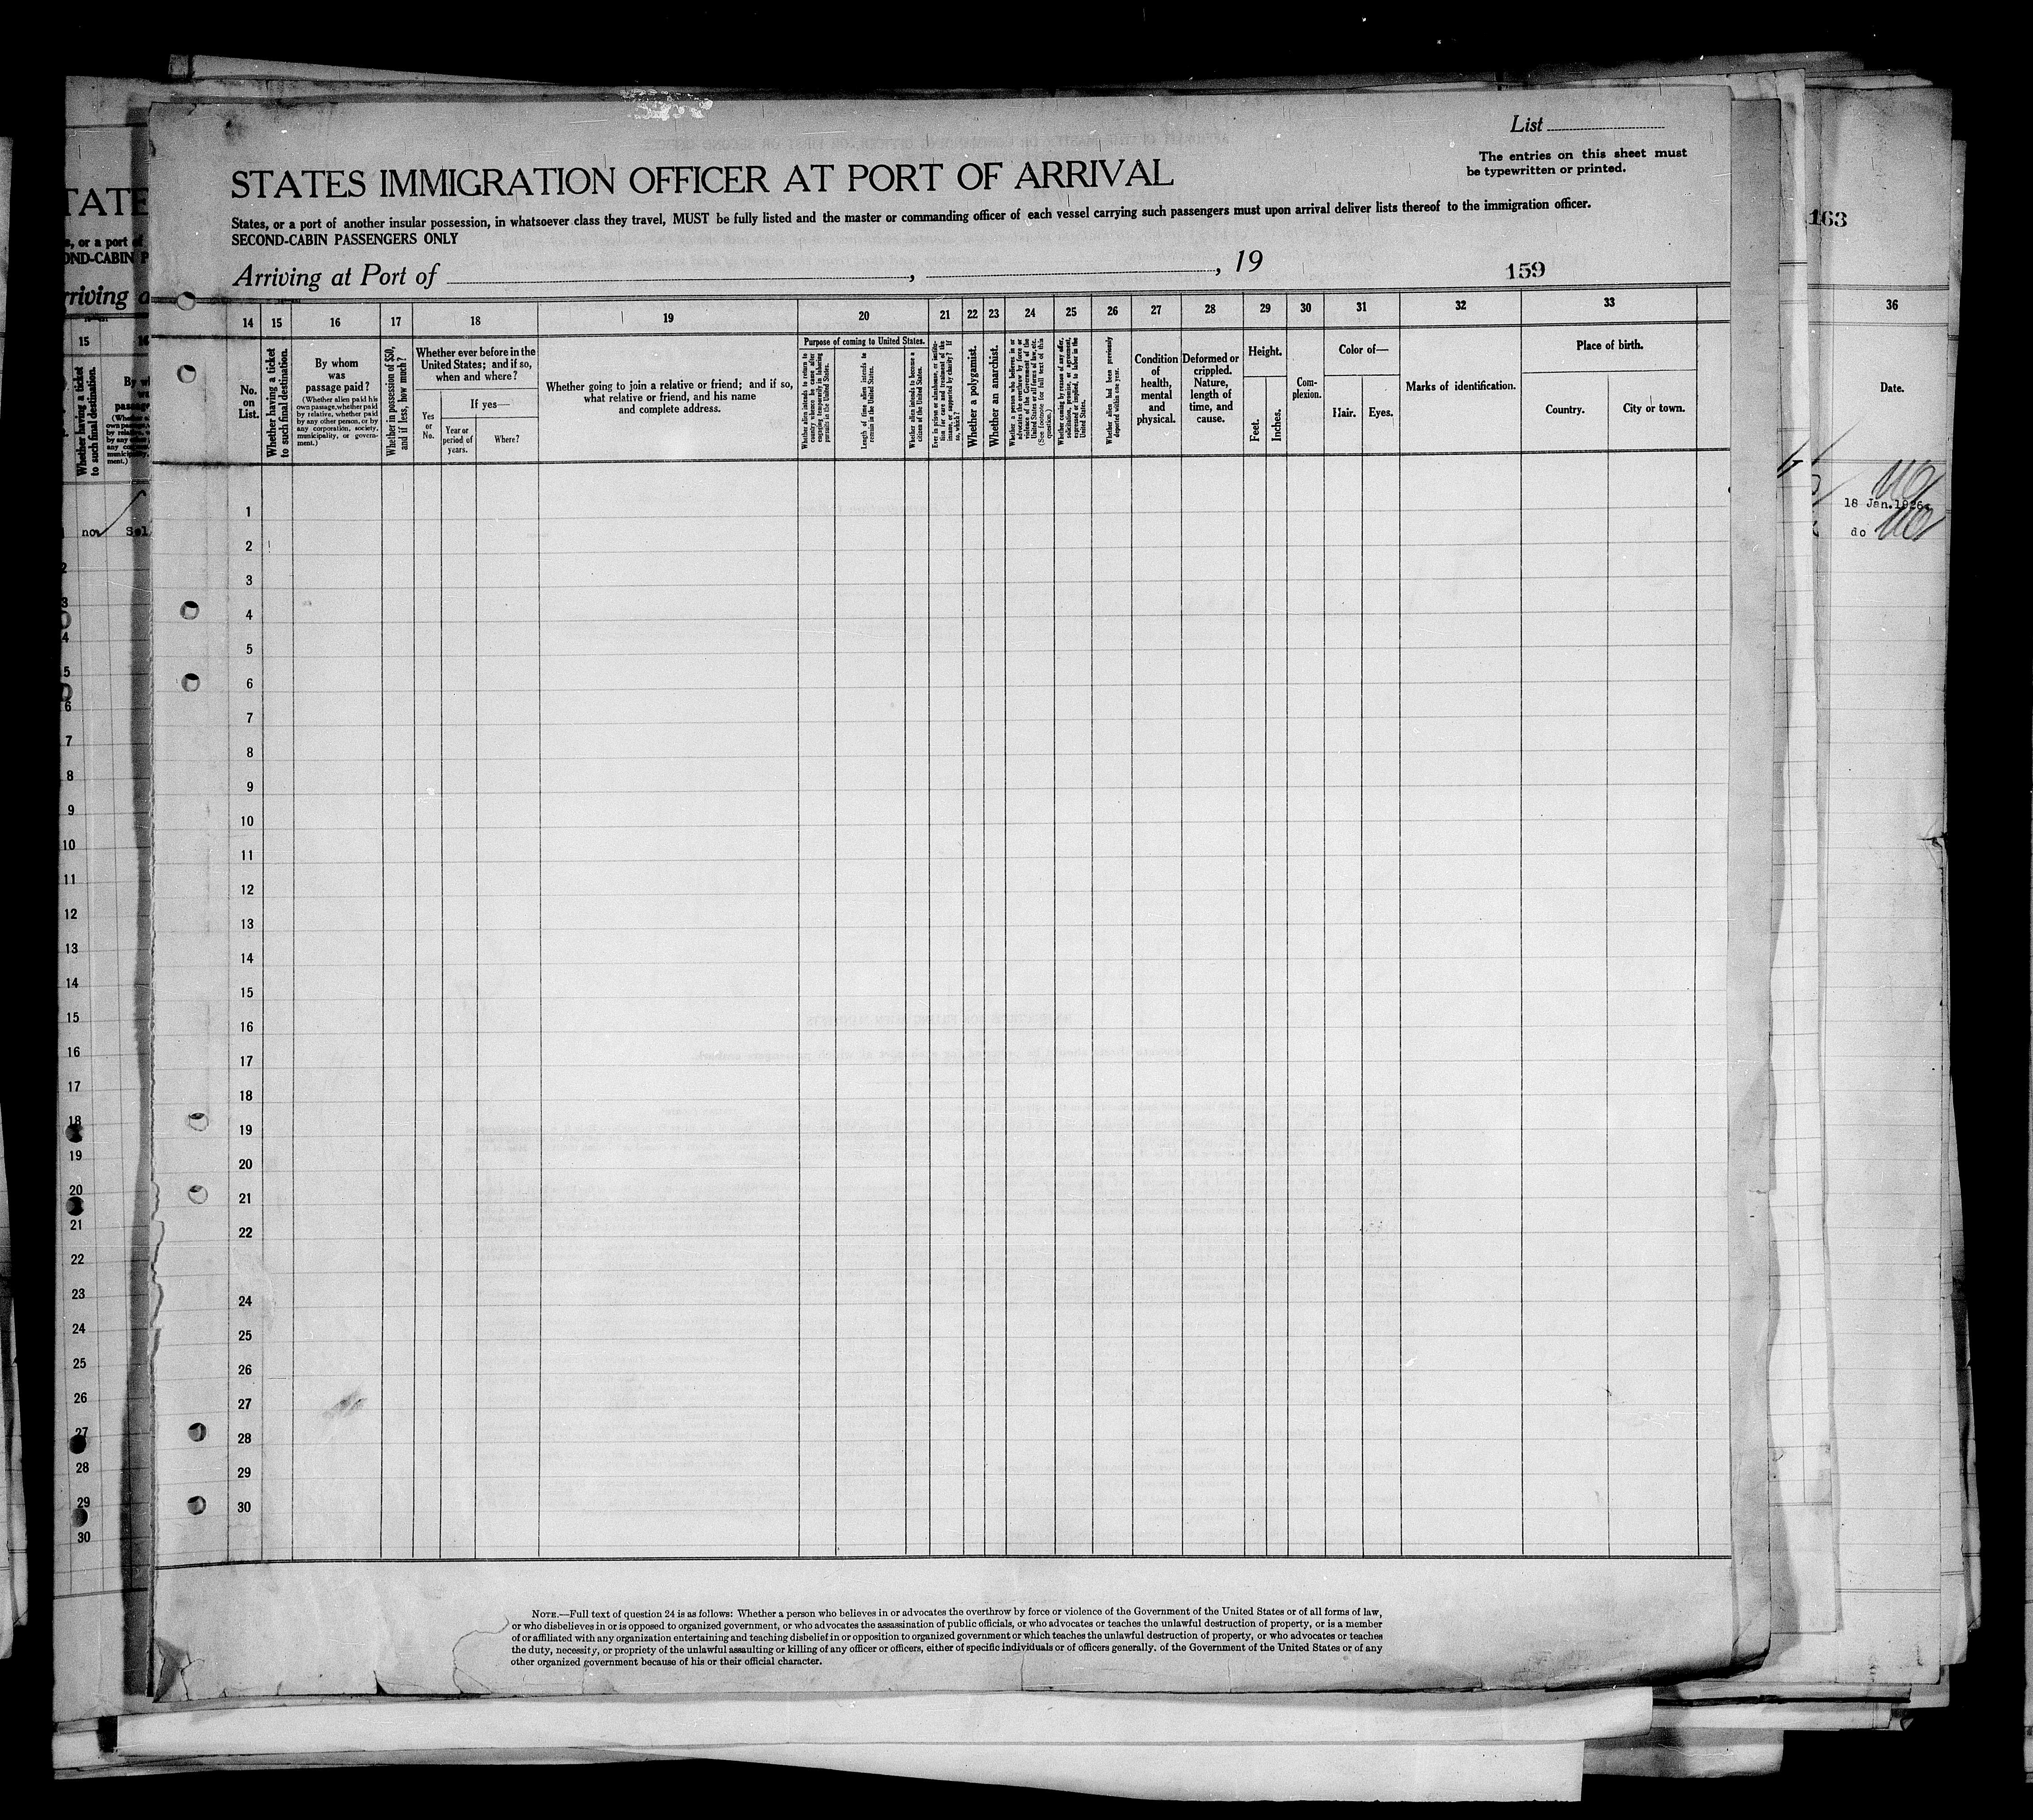 List
The entries on this sheet must
be typewritten or printed.
STATES IMMIGRATION OFFICER AT PORT OF ARRIVAL
States, or a port of another insular possession, in whatsoever class they travel, MUST be fully listed and the master or commanding officer of each vessel carrying such passengers must upon arrival deliver lists thereof to the immigration officer.
SECOND-CABIN PASSENGERS ONLY
Arriving at Port of , , 19
159
163
14 15 16 17 18 19 20 21 22 23 24 25 26 27 28 29 30 31 32 33
36
No.
on
List.
Whether having a ticket
to such final destination.
By whom
was
passage paid?
(Whether alien paid his
own passage, whether paid
by relative, whether paid
by any other person, or by
any corporation, society,
municipality, or govern-
ment.)
Whether in possession of $50,
and if less, how much?
Whether ever before in the
United States; and if so,
when and where?
Yes
or
No.
If yes—
Year or
period of
years.
Where?
Whether going to join a relative or friend; and if so,
what relative or friend, and his name
and complete address.
Purpose of coming to United States.
Whether alien intends to return to
country whence he came after
engaging temporarily in laboring
pursuits in the United States.
Length of time alien intends to
remain in the United States.
Whether alien intends to become a
citizen of the United States.
Ever in prison or almshouse, or institu-
tion for care and treatment of the
insane, or supported by charity? If
so, which?
Whether a polygamist.
Whether an anarchist.
Whether a person who believes in or
advocates the overthrow by force or
violence of the Government of the
United States or all forms of law, etc.
(See footnote for full text of this
question.)
Whether coming by reason of any offer,
solicitation, promise, or agreement,
expressed or implied, to labor in the
United States.
Whether alien had been previously
deported within one year.
Condition
of
health,
mental
and
physical.
Deformed or
crippled.
Nature,
length of
time, and
cause.
Height.
Feet.
Inches.
Com-
plexion.
Color of—
Hair.
Eyes.
Marks of identification.
Place of birth.
Country.
City or town.
Date.
18 Jan. 1926
do
1
2
3
4
5
6
7
8
9
10
11
12
13
14
15
16
17
18
19
20
21
22
24
25
26
27
28
29
30
NOTE.—Full text of question 24 is as follows: Whether a person who believes in or advocates the overthrow by force or violence of the Government of the United States or of all forms of law,
or who disbelieves in or is opposed to organized government, or who advocates the assassination of public officials, or who advocates or teaches the unlawful destruction of property, or is a member
of or affiliated with any organization entertaining and teaching disbelief in or opposition to organized government or which teaches the unlawful destruction of property, or who advocates or teaches
the duty, necessity, or propriety of the unlawful assaulting or killing of any officer or officers, either of specific individuals or of officers generally. of the Government of the United States or of any
other organized government because of his or their official character.